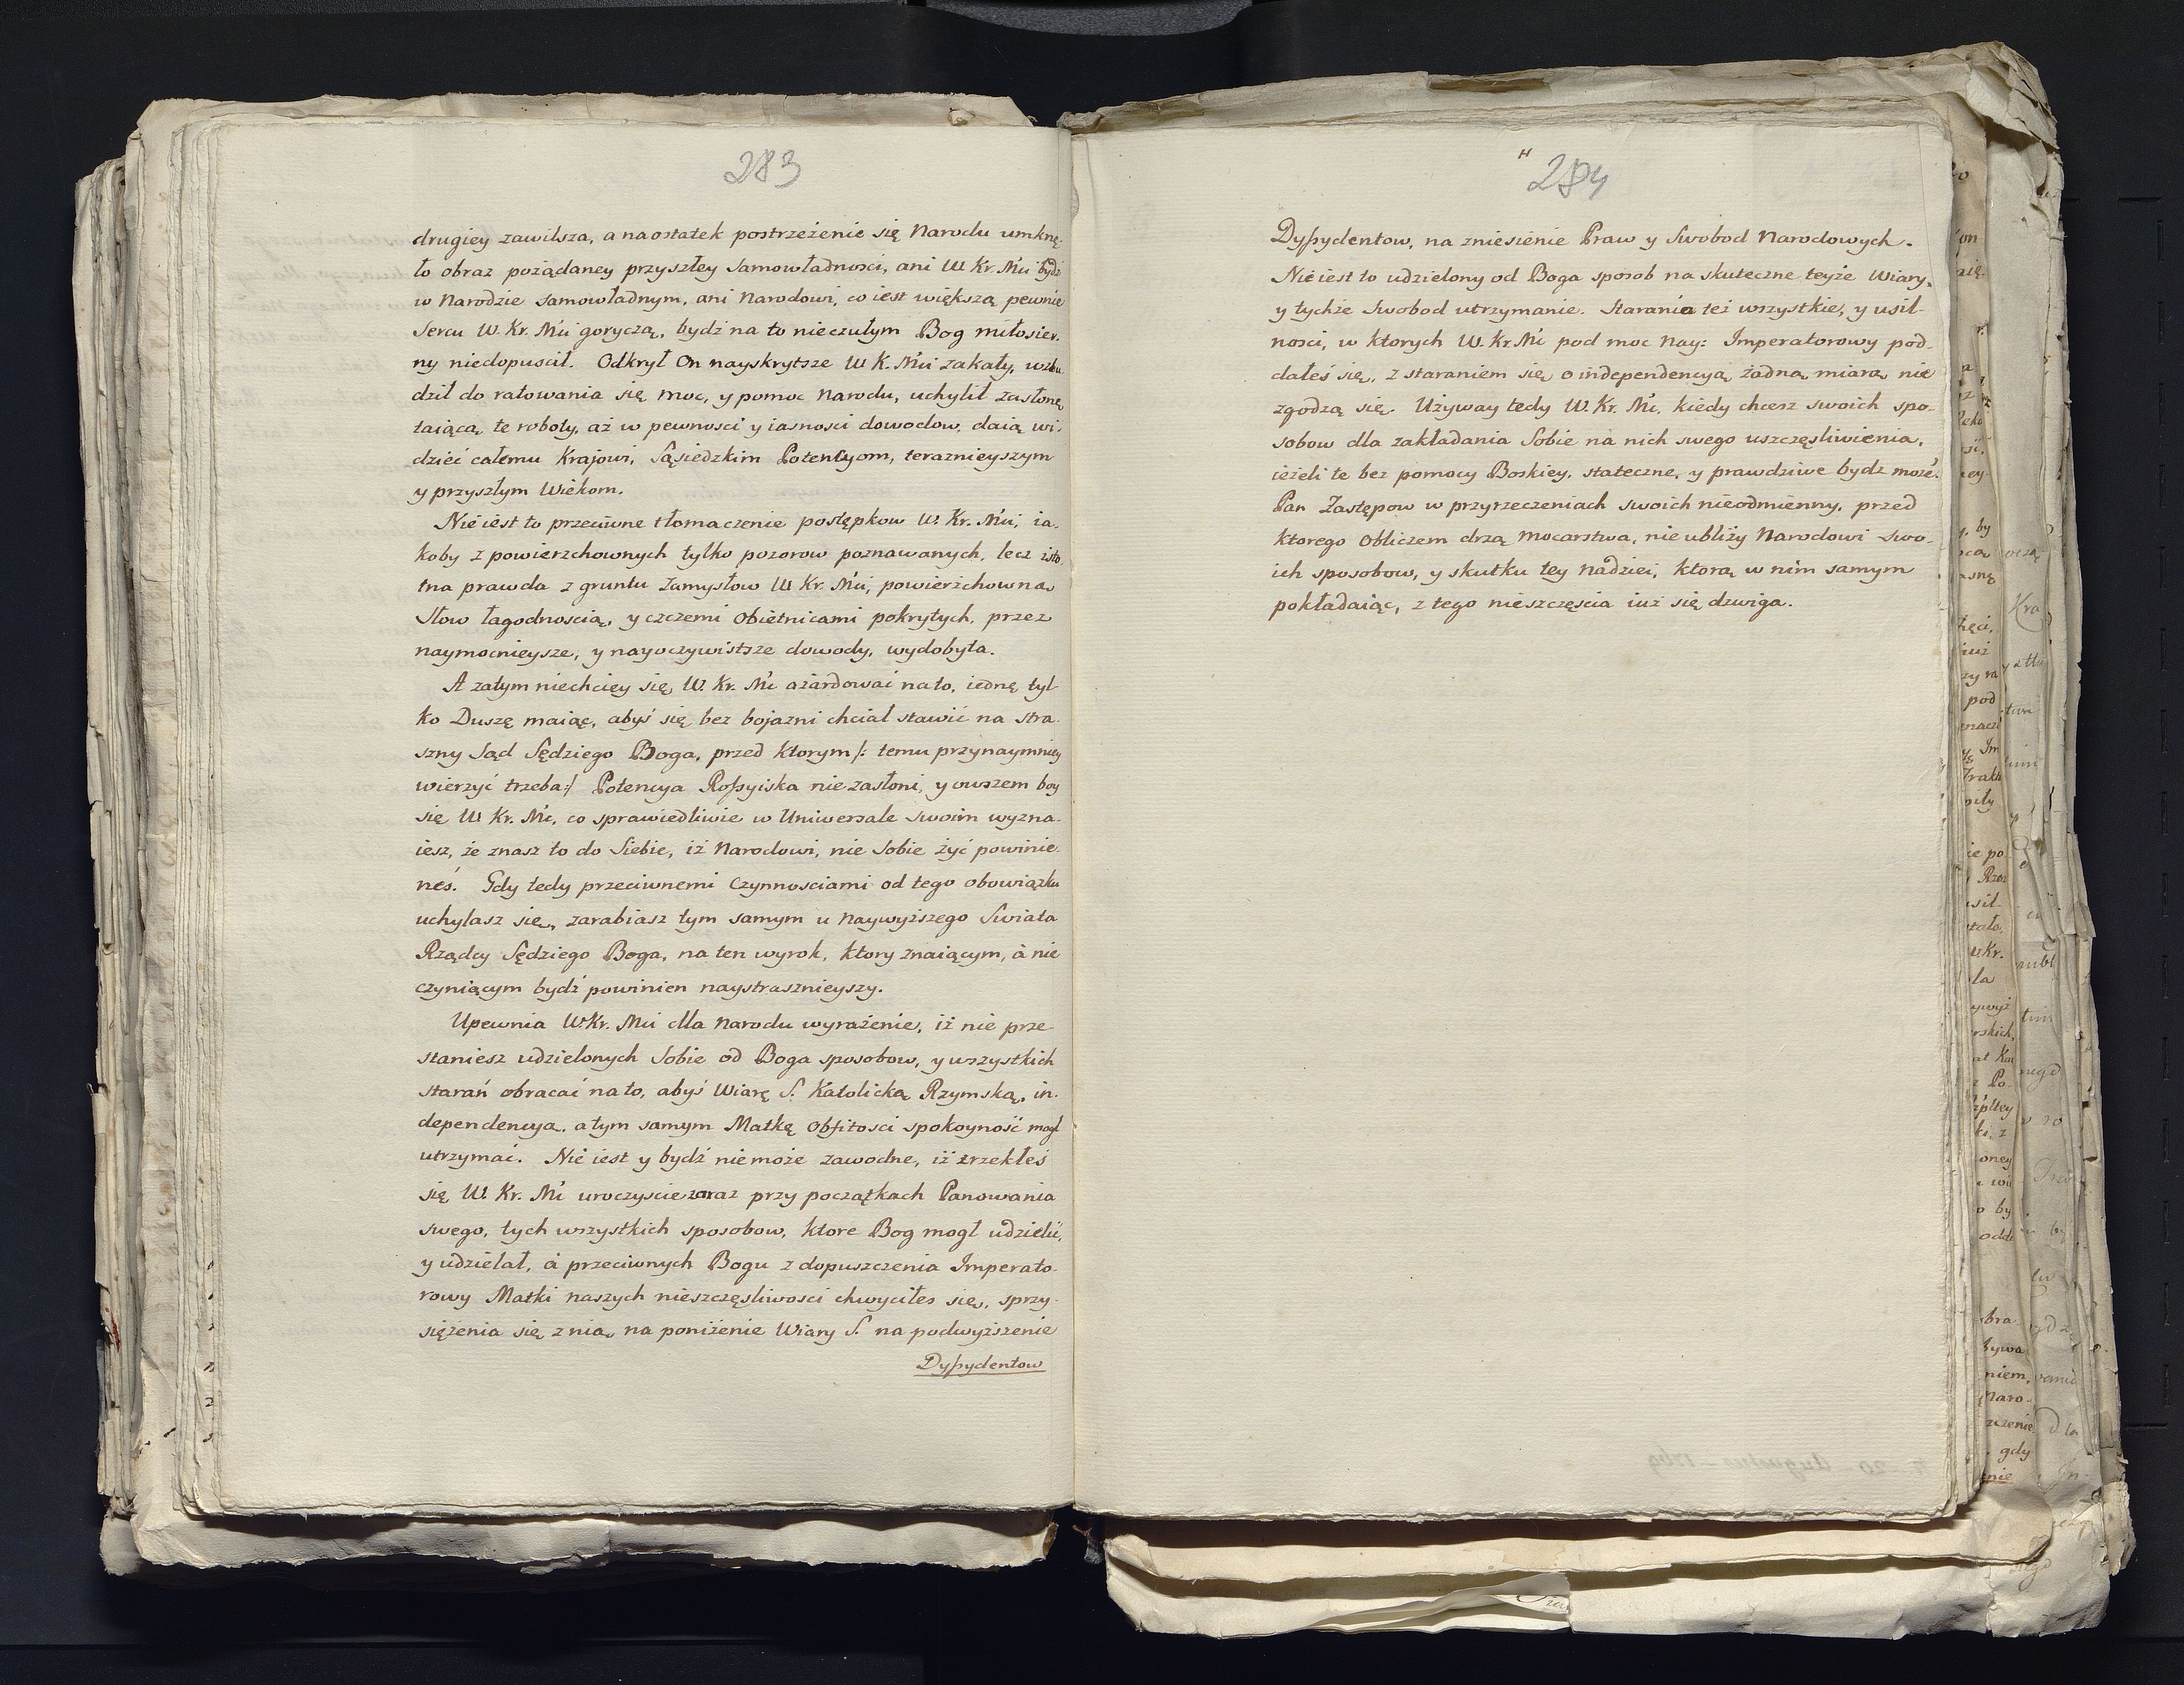 283
drugiey zawilsza, a na ostatek postrzeżenie się Narodu umknę-
ło obraz pożądaney przyszłey Samowładnosci, ani W. Kr. Mci bydź
w Narodzie samowładnym, ani Narodowi, co iest większą pewnie
Sercu W. Kr. Mci goryczą, bydź na to nieczułym Bog miłosier-
ny niedopuscił. Odkrył On nayskrytsze W K. Mci zakały, wzbu-
dził do ratowania się moc, y pomoc Narodu, uchylił zasłonę
taiącą te roboty, aż w pewnosci y iasnosci dowodow, daią wi-
dzieć całemu Krajowi, Sąsiedzkim Potencyom, teraznieyszym
y przyszłym Wiekom.
Nie iest to przeciwne tłomaczenie postępkow W. Kr. Mci, ia-
koby z powierzchownych tylko pozorow poznawanych, lecz isto-
tna prawda z gruntu Zamysłow W Kr. Mci, powierzchowną
Słow łagodnoscią, y czczemi Obietnicami pokrytych, przez
naymocnieysze, y nayoczywistsze dowody, wydobyta.
A zatym niechciey się W. Kr. Mć azardować na to, iednę tyl-
ko Duszę maiąc, abyś się bez bojazni chciał stawić na stra-
szny Sąd Sędziego Boga, przed ktorym /: temu przynaymniey
wierzyć trzeba :/ Potencya Rossyiska nie zasłoni, y owszem boy
się W Kr. Mć, co sprawiedliwie w Uniwersale swoim wyzna-
iesz, że znasz to do Siebie, iż Narodowi, nie Sobie żyć powinie-
neś. Gdy tedy przeciwnemi Czynnosciami od tego obowiązku
uchylasz się, zarabiasz tym samym u Naywyższego Swiata
Rządcy Sędziego Boga, na ten wyrok, ktory znaiącym, à nie
czyniącym bydź powinien naystrasznieyszy.
Upewnia W Kr. Mci dla Narodu wyrażenie, iż nie prze-
staniesz udzielonych Sobie od Boga sposobow, y wszystkich
starań obracać na to, abyś Wiarę S. Katolicką Rzymską, in-
dependencyą, a tym samym Matkę Obfitosci spokoyność mogł
utrzymać. Nie iest y bydź nie może zawodne, iż zrzekłeś
się W. Kr. Mć uroczyscie zaraz przy początkach Panowania
swego, tych wszystkich sposobow, ktore Bog mogł udzielić,
y udzielał, à przeciwnych Bogu z dopuszczenia Imperato-
rowy Matki naszych nieszczęsliwosci chwyciłes się, sprzy-
siężenia się z nią na poniżenie Wiary S. na podwyższenie
Dyssydentow
284
Dyssydentow, na zniesienie Praw y Swobod Narodowych.
Nie iest to udzielony od Boga sposob na skuteczne teyże Wiary,
y tychże Swobod utrzymanie. Starania też wszystkie, y usil-
nosci, w ktorych W. Kr Mć pod moc Nay: Imperatorowy pod-
dałeś się, z staraniem się o independencyą żadną miarą nie
zgodzą się. Używay tedy W. Kr. Mć, kiedy chcesz swoich spo-
sobow dla zakładania Sobie na nich swego uszczęsliwienia,
ieżeli te bez pomocy Boskiey, stateczne, y prawdziwe bydz może.
Pan Zastępow w przyrzeczeniach swoich nieodmienny, przed
ktorego Obliczem drzą mocarstwa, nie ubliży Narodowi swo-
ich sposobow, y skutku tey Nadziei, ktorą w nim samym
pokładaiąc, z tego nieszczęscia iuż się dzwiga.